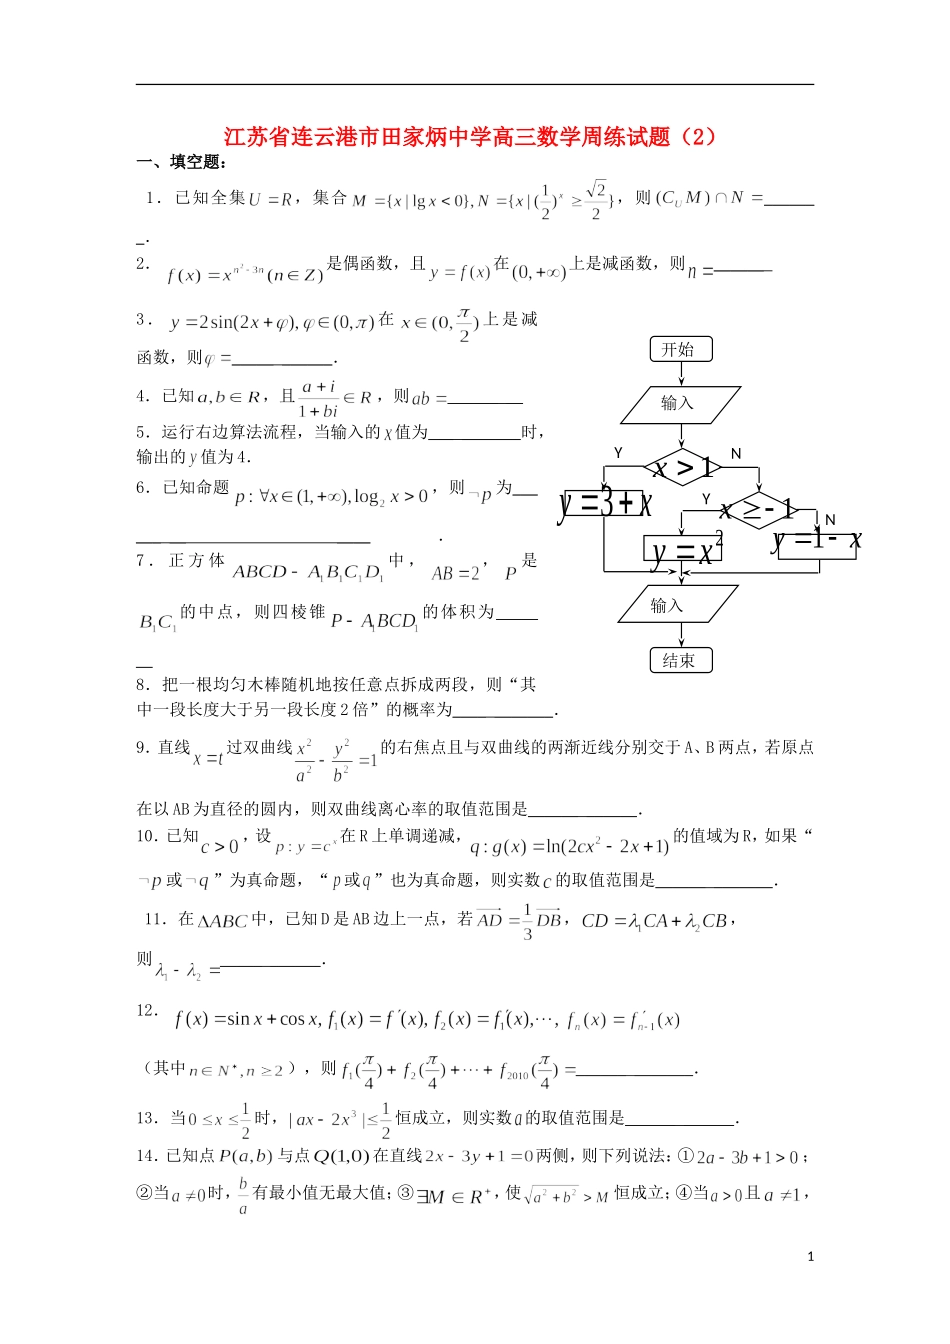 江苏省连云港市田家炳中学高三数学周练试题（2）
一、填空题：
1．已知全集U = R，集合M = {x | lg x < 0}, N = {x | (1/2)^x ≥ √2/2}，则(C_U M) ∩ N =______
_．
2． f(x) = x^{n²−3n}(n ∈ Z)是偶函数，且y = f(x)在(0, +∞)上是减函数，则n =_______
3． y = 2sin(2x + φ), φ ∈ (0, π)在 x ∈ (0, π/2)上是减
函数，则φ =____________．
4．已知a, b ∈ R，且(a + i)/(1 + bi) ∈ R，则ab =_________
5．运行右边算法流程，当输入的x值为___________时，
输出的y值为4．
6．已知命题 p : ∀x ∈ (1, +∞), log₂ x > 0，则¬p为___
____________________________ ．
7．正方体ABCD − A₁B₁C₁D₁中，AB = 2，P是
B₁C₁的中点，则四棱锥P − A₁BCD₁的体积为_____
__
8．把一根均匀木棒随机地按任意点拆成两段，则“其
中一段长度大于另一段长度2倍”的概率为____________．
9．直线x = t过双曲线x²/a² − y²/b² = 1的右焦点且与双曲线的两渐近线分别交于A、B两点，若原点
在以AB为直径的圆内，则双曲线离心率的取值范围是_____________．
10．已知c > 0，设p : y = c^x在R上单调递减，q : g(x) = ln(2cx² − 2x + 1)的值域为R，如果“
¬p或¬q”为真命题，“p或q”也为真命题，则实数c的取值范围是______________．
11．在ΔABC中，已知D是AB边上一点，若AD = 1/3 DB，CD = λ₁CA + λ₂CB，
则λ₁ − λ₂ =____________．
12． f(x) = sin x + cos x, f₁(x) = f′(x), f₂(x) = f₁′(x), ⋯, f_n(x) = f′_{n−1}(x)
（其中n ∈ N⁺, n ≥ 2），则f₁(π/4) + f₂(π/4) + ⋯ + f₂₀₁₀(π/4) =______________．
13．当0 ≤ x ≤ 1/2时，| ax − 2x³ | ≤ 1/2恒成立，则实数a的取值范围是_____________．
14．已知点P(a, b)与点Q(1, 0)在直线2x − 3y + 1 = 0两侧，则下列说法：①2a − 3b + 1 > 0；
②当a ≠ 0时，b/a有最小值无最大值；③∃M ∈ R⁺，使√(a² + b²) > M恒成立；④当a > 0且a ≠ 1，
开始
输入
Y
x > 1
N
y = 3 + x
Y
x ≥ −1
N
y = x²
y = 1 − x
输入
结束
1